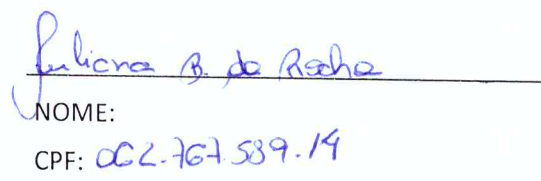 Juliana B. da Rocha
NOME:
CPF: 062.767.589.14